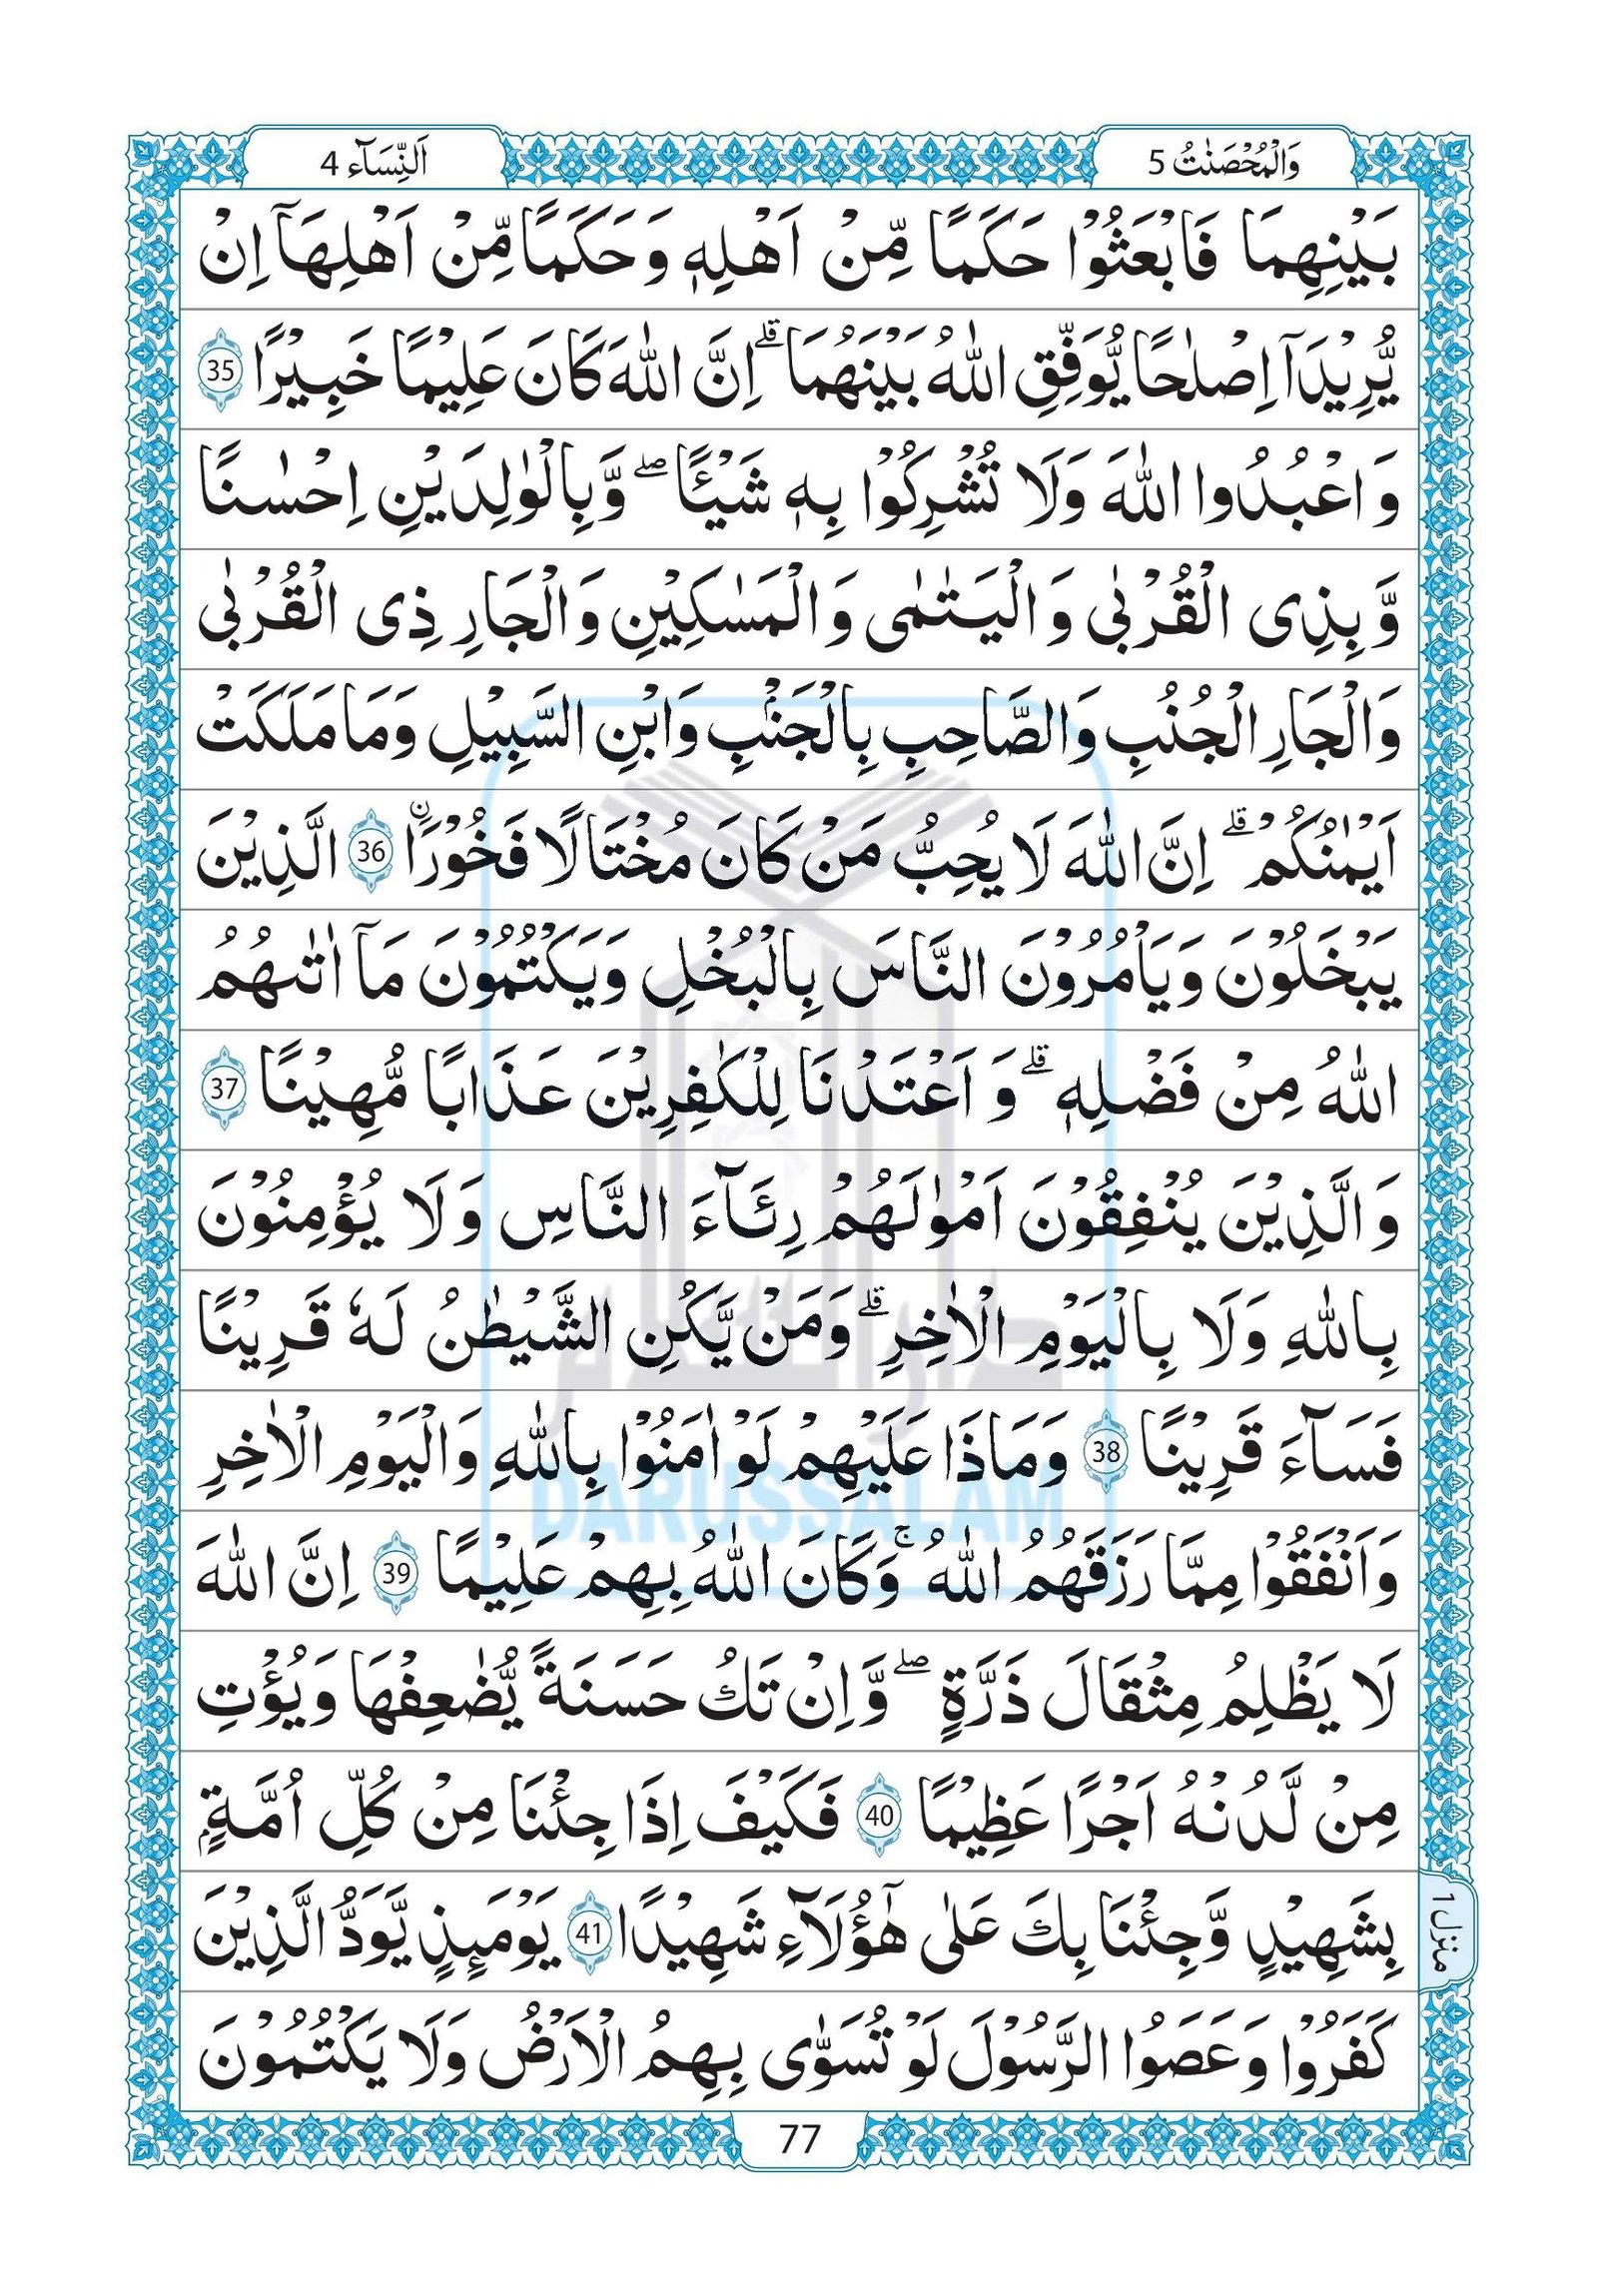 وَالْمُحْصَنٰتُ 5
اَلنِّسَآء 4
بَيْنِهِمَا فَابْعَثُوْا حَكَمًا مِّنْ اَهْلِهٖ وَحَكَمًا مِّنْ اَهْلِهَاۤ اِنْ
يُّرِيْدَاۤ اِصْلٰحًا يُّوَفِّقِ اللّٰهُ بَيْنَهُمَا ۗ اِنَّ اللّٰهَ كَانَ عَلِيْمًا خَبِيْرًا 35
وَاعْبُدُوا اللّٰهَ وَلَا تُشْرِكُوْا بِهٖ شَيْـًٔا ۖ وَّبِالْوٰلِدَيْنِ اِحْسٰنًا
وَّبِذِى الْقُرْبٰى وَالْيَتٰمٰى وَالْمَسٰكِيْنِ وَالْجَارِ ذِى الْقُرْبٰى
وَالْجَارِ الْجُنُبِ وَالصَّاحِبِ بِالْجَنْۢبِ وَابْنِ السَّبِيْلِ وَمَا مَلَكَتْ
اَيْمٰنُكُمْ ۗ اِنَّ اللّٰهَ لَا يُحِبُّ مَنْ كَانَ مُخْتَالًا فَخُوْرَاۨ 36 الَّذِيْنَ
يَبْخَلُوْنَ وَيَاْمُرُوْنَ النَّاسَ بِالْبُخْلِ وَيَكْتُمُوْنَ مَاۤ اٰتٰىهُمُ
اللّٰهُ مِنْ فَضْلِهٖ ۗ وَاَعْتَدْنَا لِلْكٰفِرِيْنَ عَذَابًا مُّهِيْنًا 37
وَالَّذِيْنَ يُنْفِقُوْنَ اَمْوٰلَهُمْ رِئَآءَ النَّاسِ وَلَا يُؤْمِنُوْنَ
بِاللّٰهِ وَلَا بِالْيَوْمِ الْاٰخِرِ ۗ وَمَنْ يَّكُنِ الشَّيْطٰنُ لَهٗ قَرِيْنًا
فَسَآءَ قَرِيْنًا 38 وَمَاذَا عَلَيْهِمْ لَوْ اٰمَنُوْا بِاللّٰهِ وَالْيَوْمِ الْاٰخِرِ
وَاَنْفَقُوْا مِمَّا رَزَقَهُمُ اللّٰهُ ۚ وَكَانَ اللّٰهُ بِهِمْ عَلِيْمًا 39 اِنَّ اللّٰهَ
لَا يَظْلِمُ مِثْقَالَ ذَرَّةٍ ۖ وَّاِنْ تَكُ حَسَنَةً يُّضٰعِفْهَا وَيُؤْتِ
مِنْ لَّدُنْهُ اَجْرًا عَظِيْمًا 40 فَكَيْفَ اِذَا جِئْنَا مِنْ كُلِّ اُمَّةٍۭ
بِشَهِيْدٍ وَّجِئْنَا بِكَ عَلٰى هٰۤؤُلَآءِ شَهِيْدًا 41 يَوْمَئِذٍ يَّوَدُّ الَّذِيْنَ
كَفَرُوْا وَعَصَوُا الرَّسُوْلَ لَوْ تُسَوّٰى بِهِمُ الْاَرْضُ وَلَا يَكْتُمُوْنَ
منزل 1
77
دارالسلام
DARUSSALAM